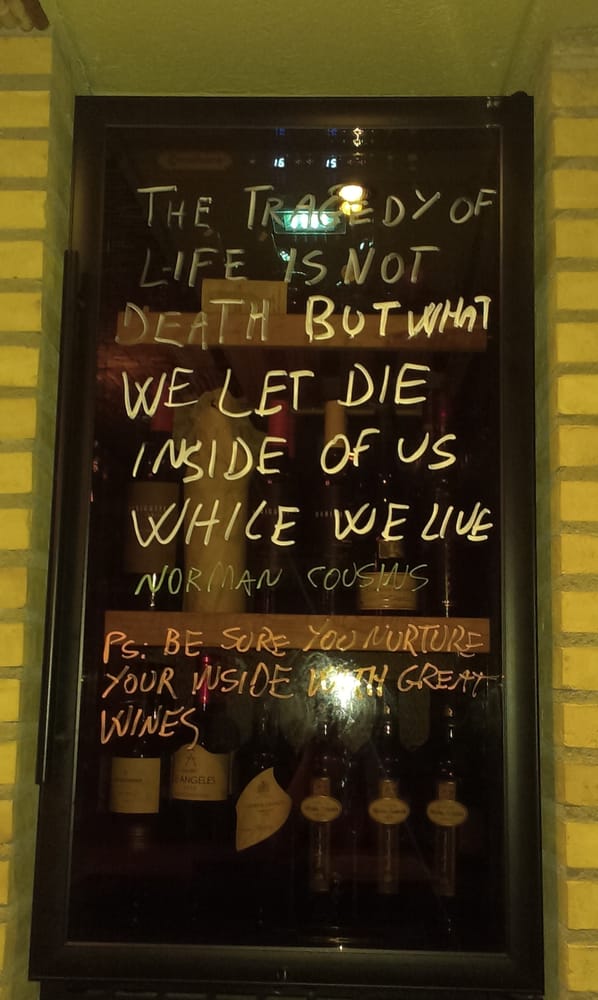 16 15
THE TRAGEDY OF
LIFE IS NOT
DEATH BUT WHAT
WE LET DIE
INSIDE OF US
WHILE WE LIVE
NORMAN COUSINS
PS: BE SURE YOU NURTURE
YOUR INSIDE WITH GREAT
WINES
ANGELES